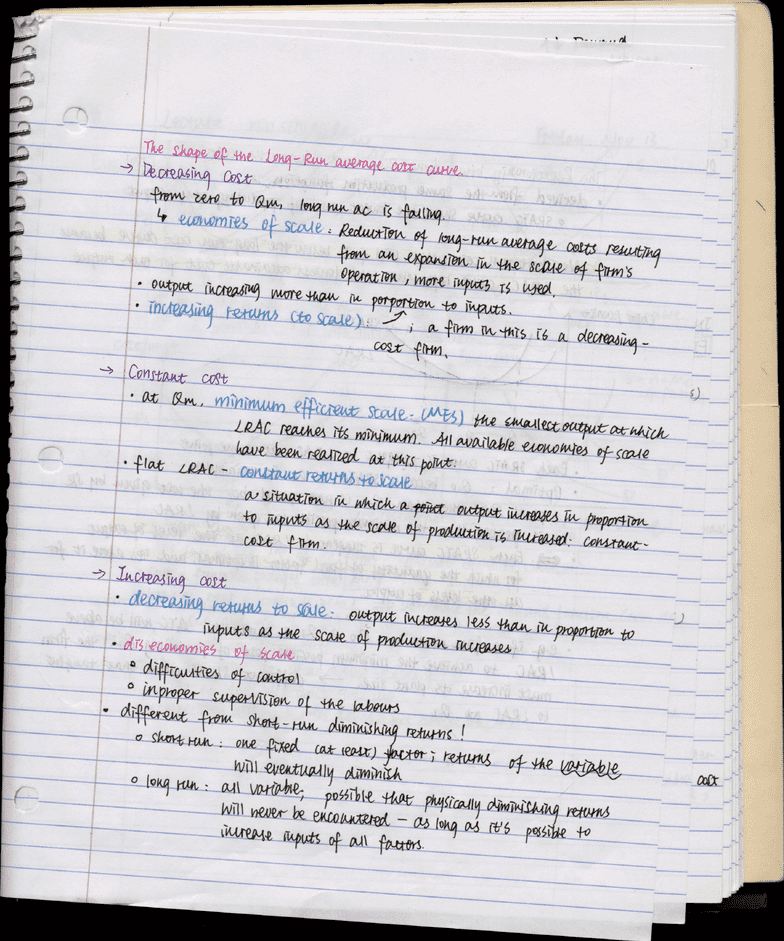 The shape of the Long-Run average cost curve.
→ Decreasing cost
from zero to Qm, long run ac is falling.
↳ economies of scale: Reduction of long-run average costs resulting
from an expansion in the scale of firm's
operation, more inputs is used.
• output increasing more than in porportion to inputs.
• increasing returns (to scale): ; a firm in this is a decreasing-
cost firm.
→ Constant cost
• at Qm, minimum efficient scale- (MES) the smallest output at which
LRAC reaches its minimum. All available economies of scale
have been realized at this point.
• flat LRAC - constant returns to scale
a situation in which a point output increases in proportion
to inputs as the scale of production is increased. constant-
cost firm.
→ Increasing cost
• decreasing returns to scale: output increases less than in proportion to
inputs as the scale of production increases
• diseconomies of scale
○ difficulties of control
○ inproper supervision of the labours
• different from short-run diminishing returns!
○ short run: one fixed (at least) factor; returns of the variable
will eventually diminish
○ long run: all variable, possible that physically diminishing returns
will never be encountered - as long as it's possible to
increase inputs of all factors.
cost